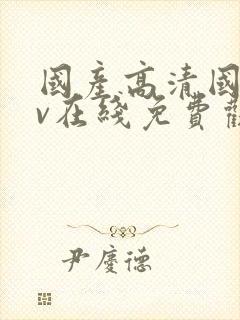 國産高清國
v在綫免費觀
尹慶德